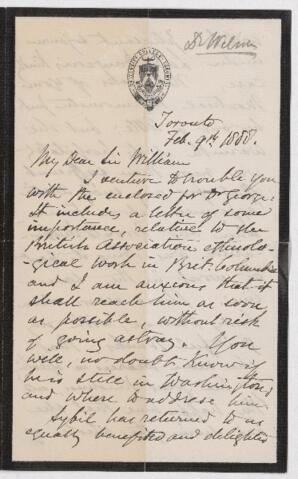 Dr Wilson
UNIVERSITY COLLEGE TORONTO
Toronto
Feb. 9th 1888.
My Dear Sir William
I venture to trouble you
with the enclosed for Dr George.
It includes a letter of some
importance, relative to the
British Association ethnolo-
gical work in Brit. Columbia
and I am anxious that it
shall reach him as soon
as possible, without risk
of going astray. You
will, no doubt know if
he is still in Washington,
and where to address him
Sybil has returned to us
equally benefited and delighted